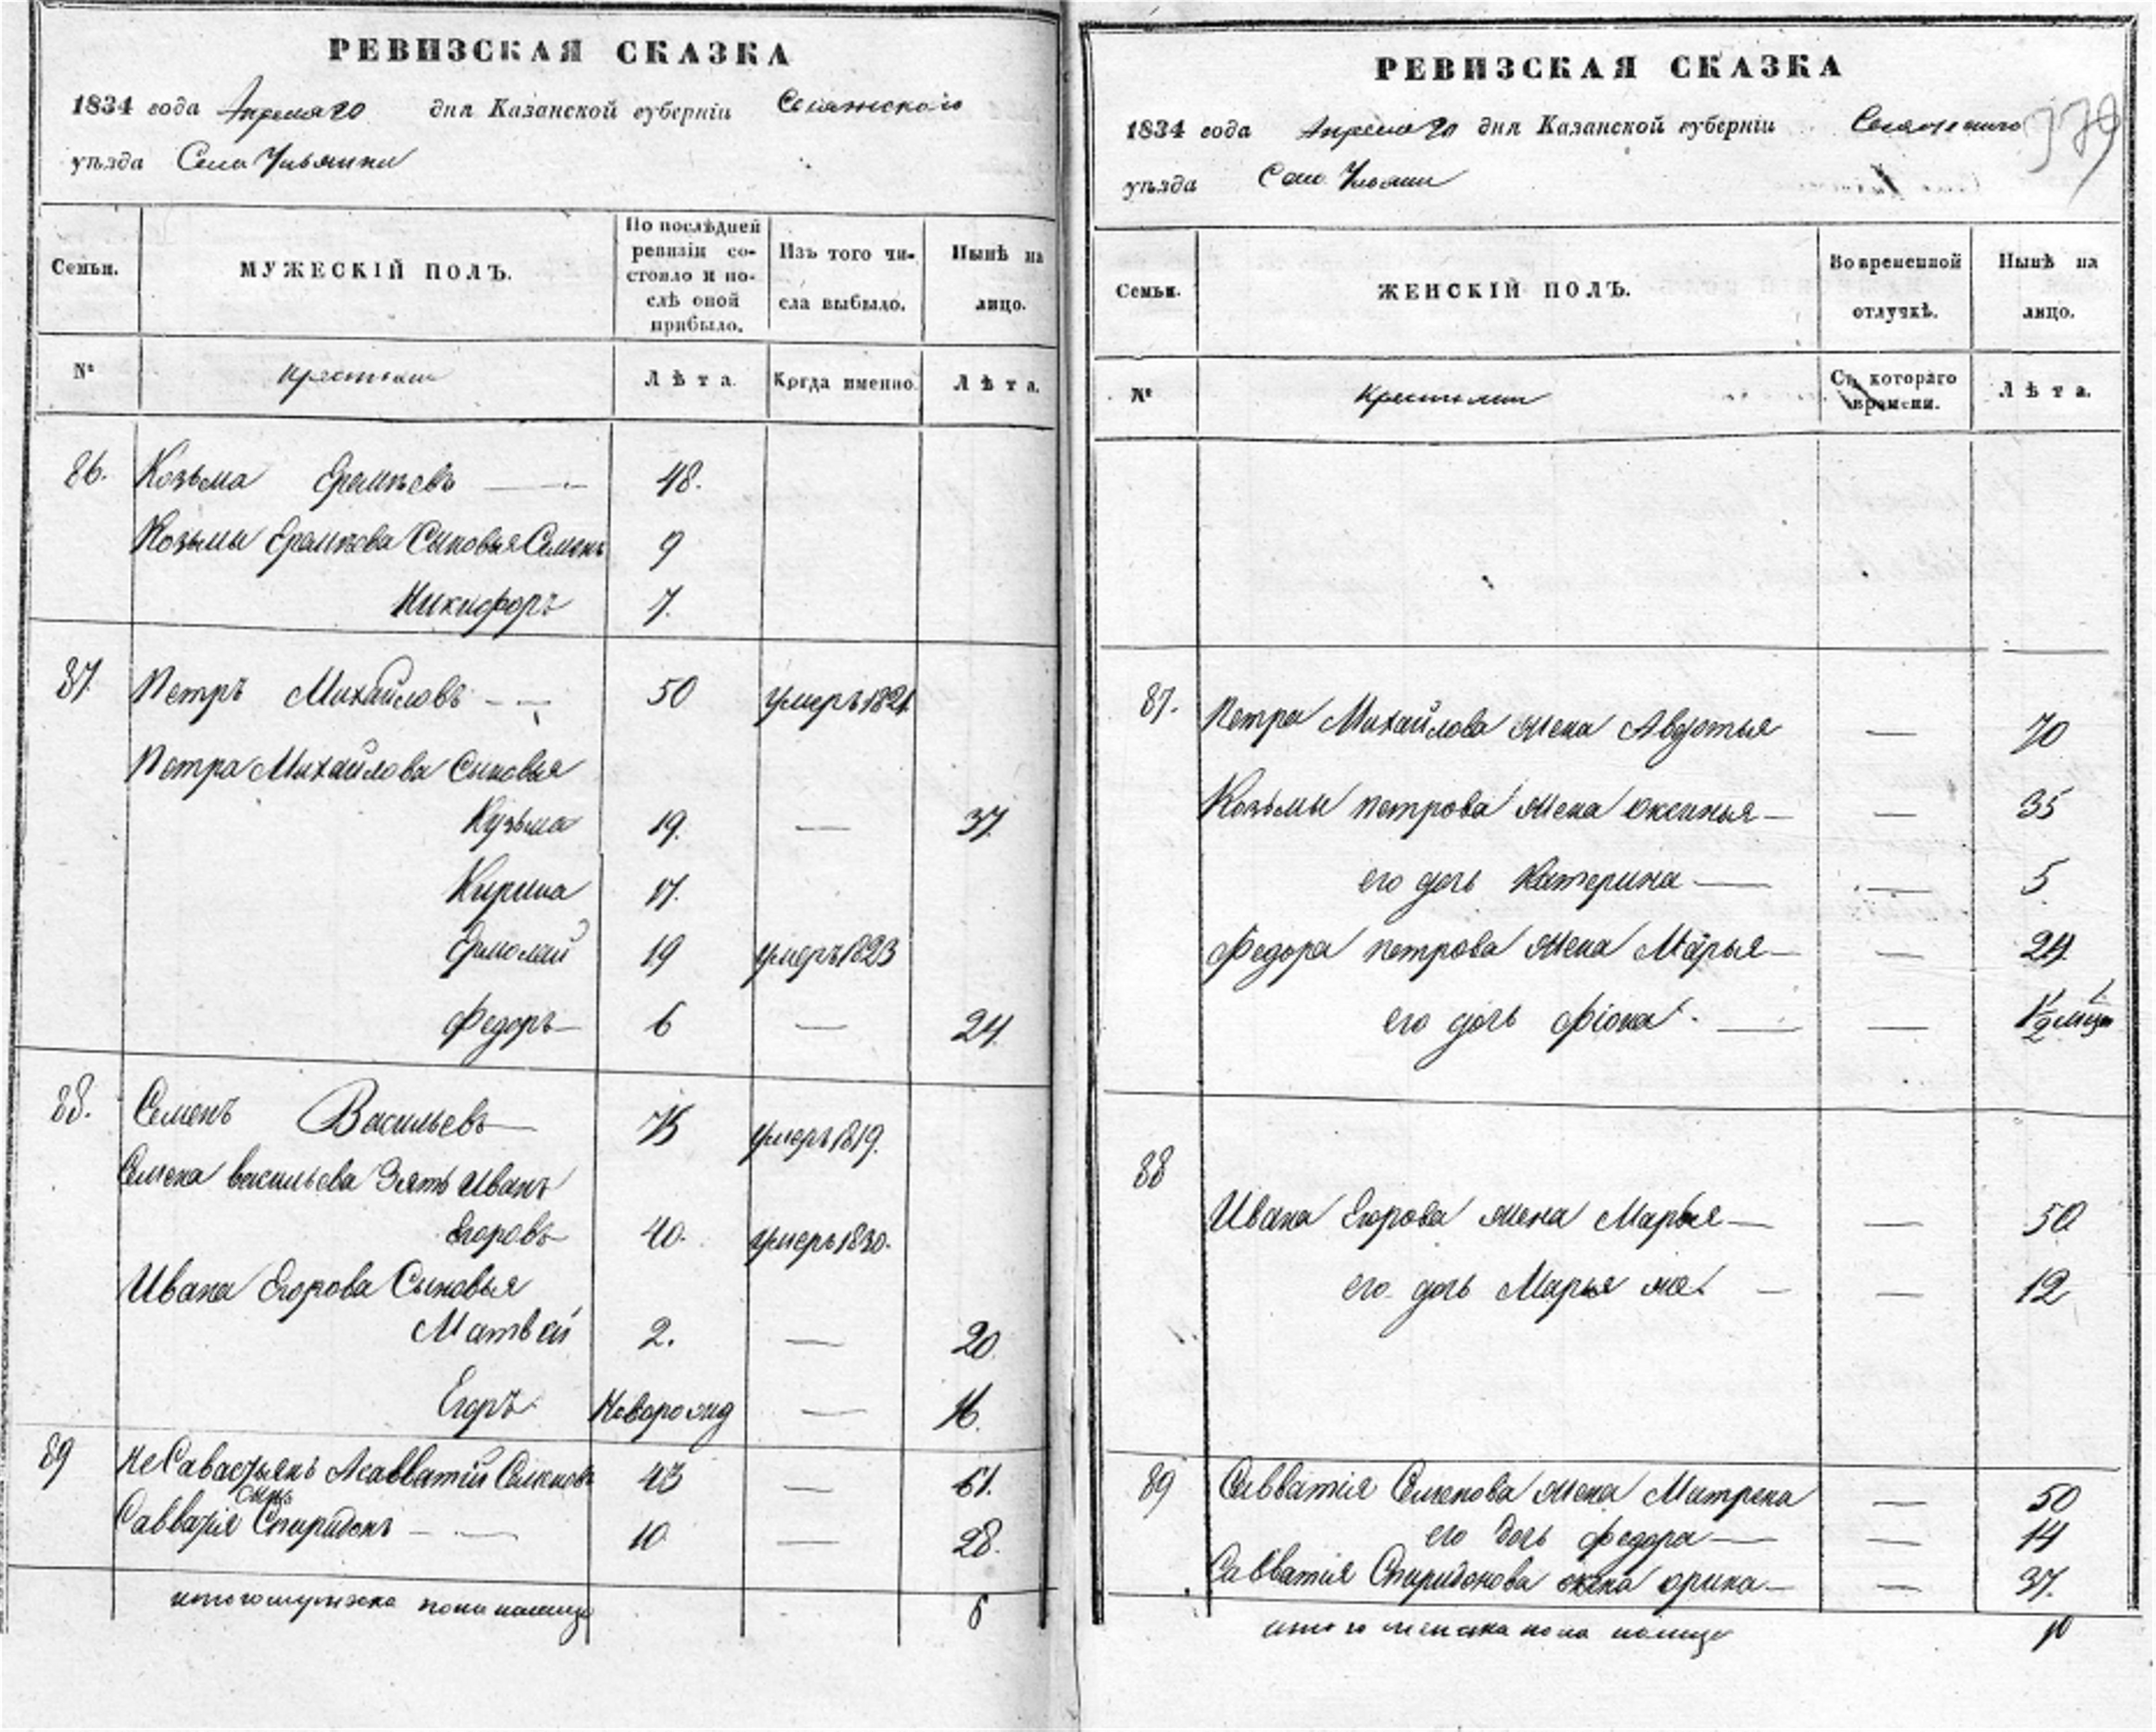 РЕВИЗСКАЯ СКАЗКА
1834 года Апреля 20 дня Казанской губерніи
уѣзда Села
Семьи.
МУЖЕСКІЙ ПОЛЪ.
По послѣдней ревизіи состояло и послѣ оной прибыло.
Изъ того числа выбыло.
Нынѣ на лицо.
№
Лѣта.
Когда именно.
Лѣта.
86. Козьма Еремѣевъ — 48.
Козьмы Еремѣева Сыновья Семенъ 9
Никифоръ 7.
87. Петръ Михайловъ — 50 умеръ 1821
Петра Михайлова Сыновья
Кузьма 19. — 37.
Кирила 17.
Ермолай 19 умеръ 1823
Федоръ 6 — 24.
88. Семенъ Васильевъ 75 умеръ 1819.
Семена васильева Зять Иванъ
Егоровъ 40. умеръ 1830.
Ивана Егорова Сыновья
Матвей 2. — 20.
Егоръ Новорожд — 16.
89 Не Савастьянъ А Савватій Семеновъ 43 — 61.
сынъ
Савватія Спиридонъ — 10 — 28.
итого мужска пола налицо 6
РЕВИЗСКАЯ СКАЗКА
379
1834 года Апреля 20 дня Казанской губерніи
уѣзда Село
Семьи.
ЖЕНСКІЙ ПОЛЪ.
Во временной отлучкѣ.
Нынѣ на лицо.
№
Съ котораго времени.
Лѣта.
87. Петра Михайлова жена Авдотья — 70
Козьмы петрова жена оксинья — — 35
его дочь Катерина — — 5
Федора петрова жена Марья — — 24.
его дочь Фіона — —
88
Ивана Егорова жена Марья — — 50
его дочь Марья же — — 12
89 Савватія Семенова жена Матрена — 50
его дочь федора — — 14
Савватія Спиридонова жена орина — — 37.
итого женска пола налицо 10